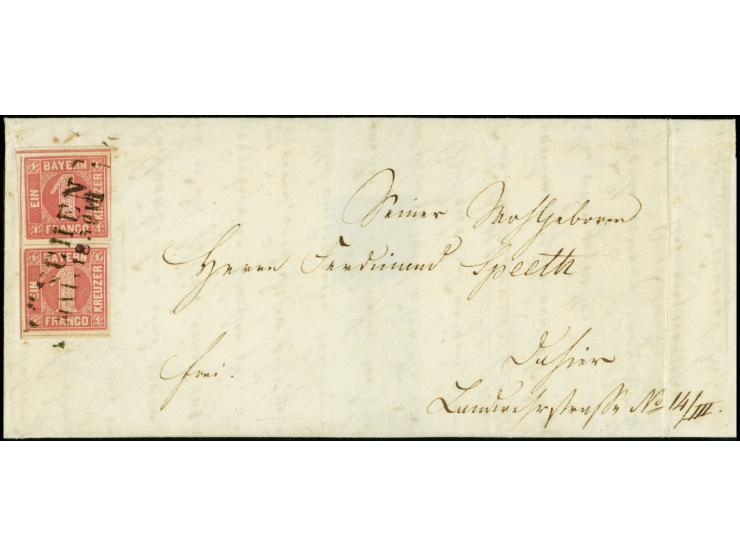 BAYERN
EIN
KREUZER
FRANCO
BAYERN
EIN
KREUZER
FRANCO
Seiner Wohlgeboren
Herrn Ferdinand Speeth
frei.
Dahier
Landwehrstrasse No 14/III.